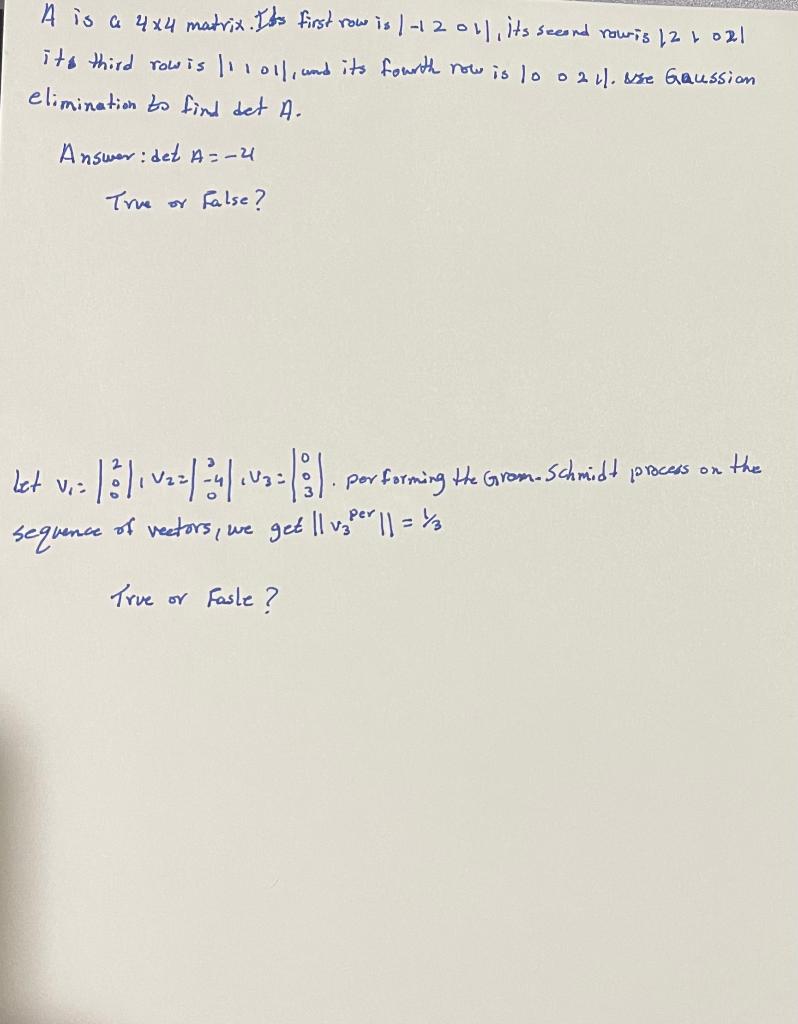 A is a 4x4 matrix. Its first row is |-1 2 0 1|, its second row is |2 1 0 2|
its third row is |1 1 0 1|, and its fourth row is |0 0 2 1|. Use Gaussion
elimination to find det A.
Answer: det A = -4
True or False?
Let v₁ = |2 0 0|, v₂ = |3 -4 0|, v₃ = |0 0 3|. performing the Gram-Schmidt process on the
sequence of vectors, we get ||v₃ᵖᵉʳ|| = 1/3
True or Fasle?